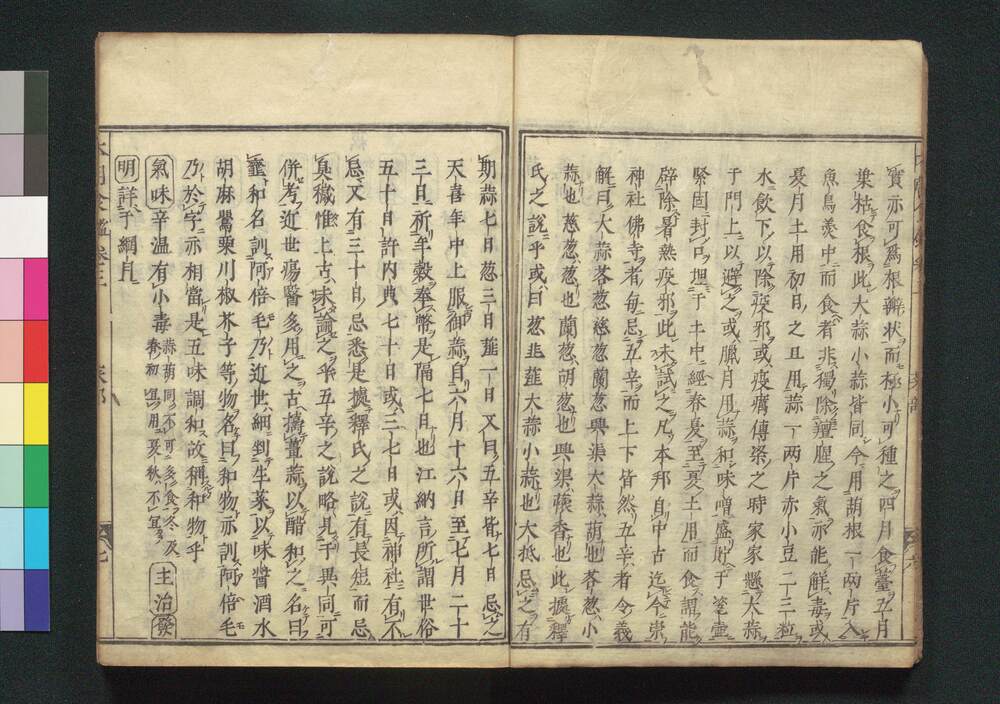 實亦可為根辨状而極小可種之四月食薹五月
葉枯食根此大蒜小蒜皆同今用葫根一両片入
魚鳥羹中而食者非獨除羶腥之氣亦能觧毒或
夏月土用初日之且用蒜一両片赤小豆二三粒
水飲下以除疫邪或疫癘傳染之時家家懸大蒜
于門上以避之或臘月用蒜和味噌盛貯于瓷壷
緊固封口埋于土中經春夏至夏土用而食謂能
辟除暑熱疫邪此未試之凡本邦自中古迄今崇
神社佛寺者毎忌五辛而上下皆然五辛者令義
觧曰大蒜茖葱慈葱蘭葱興渠大蒜葫也茖葱小
蒜也慈葱葱也蘭葱胡葱也興渠蕠香也此據釋
氏之説乎或曰葱韭薤大蒜小蒜也大抵忌之有
期蒜七日葱三日薤一日又曰五辛皆七日忌之
天喜年中上服御蒜自六月十六日至七月二十
三日祈年穀奉幣是隔七日也江納言所謂世俗
五十日許内典七十日或三七日或因神社有不
忌又有三十日忌悉是據釋氏之説有長短而忌
臭穢惟上古未論之乎五辛之説略見于異同可
併考近世瘍醫多用之古擣韲蒜以醋和之名曰
韲和名訓阿倍毛乃近世細剉生菜以味醬酒水
胡麻罌粟川椒芥子等物名曰和物亦訓阿倍毛
乃於字亦相當是五味調和故稱和物乎
氣味辛温有小毒蒜葫同不可多食冬及春初宜用夏秋不宜多主治發
明詳于綱目